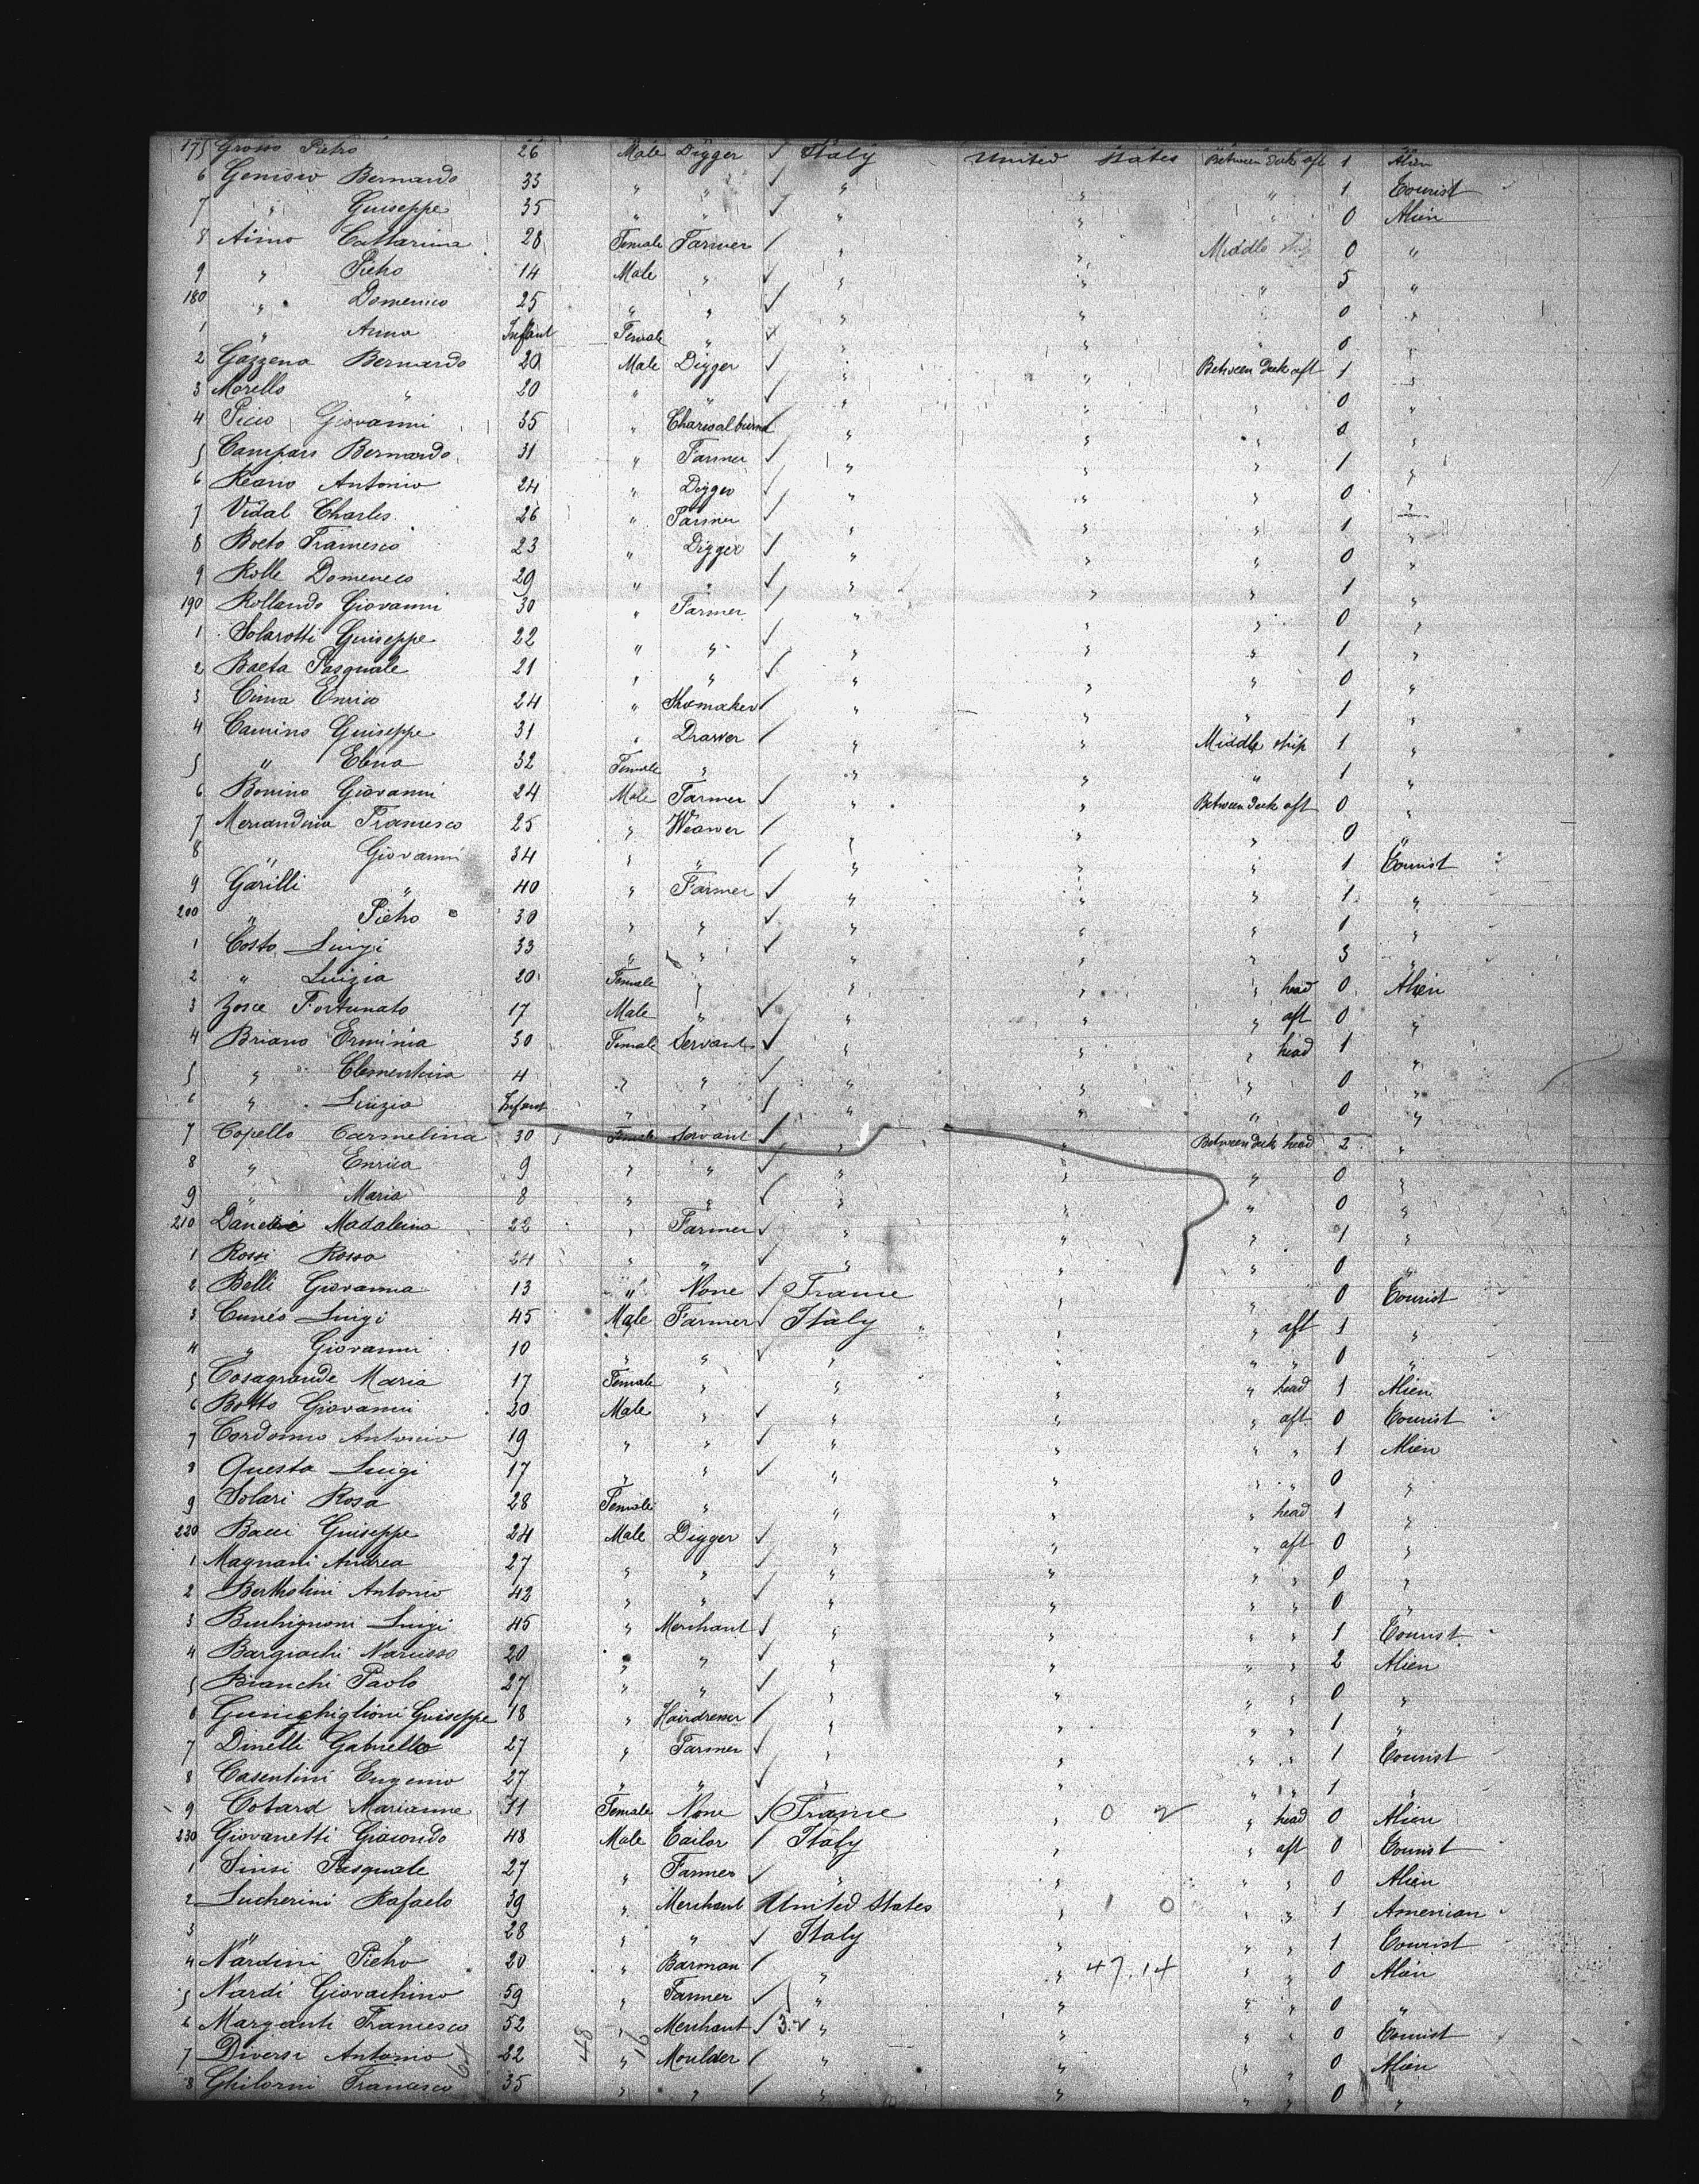 175 Grosso Pietro 26 Male Digger ✓ Italy United States Between deck aft 1 Alien
6 Bernardo 33 " " ✓ " " " 1 Tourist
7 " Guiseppe 35 " " ✓ " " " 0 Alien
8 Aimo Cattarina 28 Female Farmer ✓ " " Middle 0 "
9 " Pietro 14 Male " ✓ " " " 5 "
180 " Domenico 25 " " ✓ " " 0 "
1 " Anna Infant Female " ✓ " " " 0 "
2 Gazzena Bernardo 20 Male Digger ✓ " " Between deck aft 1 "
3 Morello " 20 " " ✓ " " " 0 "
4 Giovanni 35 " ✓ " " " 0 "
5 Bernardo 31 " Farmer ✓ " " " 1 "
6 Reano Antonio 24 " ✓ " " " 0 "
7 Vidal Charles 26 " Farmer ✓ " " " 1 "
8 Boeto 23 " Digger ✓ " " " 0 "
9 Rolle 29 " " ✓ " " " 1 "
190 Rollando Giovanni 30 " Farmer ✓ " " " 0 "
1 Solarotti Guiseppe 22 " " ✓ " " " 1 "
2 Baeta Pasquale 21 " " ✓ " " " 0 "
3 Cima Enrico 24 " Shomaker ✓ " " " 1 "
4 Camino Guiseppe 31 " Drawer ✓ " " Middle ship 1 "
5 " Elena 32 Female " " " " 1 "
6 Bonino Giovanni 24 Male Farmer ✓ " " Between deck aft 0 "
7 Francesco 25 " Weawer ✓ " " " 0 "
8 " Giovanni 34 " " ✓ " " " 1 Tourist
9 Garilli " 40 " Farmer ✓ " " " 1 "
200 " Pietro 30 " " ✓ " " " 1 "
1 Costa Luigi 33 " " ✓ " " " 3 "
2 " Luizia 20 Female " " " " head 0 Alien
3 Fortunato 17 Male " ✓ " " " aft 0 "
4 Briano Erminia 30 Female Servant ✓ " " " head 1 "
5 " Clementina 4 " " ✓ " " " 0 "
6 " Luizia Infant " " ✓ " " " 0 "
7 Copello Carmelina 30 Female Servant ✓ " " Between deck head 2 "
8 " Enrica 9 " " ✓ " " " 0 "
9 " Maria 8 " " ✓ " " " 0 "
210 Madaleina 22 " Farmer ✓ " " " 1 "
1 Rossi Rosso 24 " " ✓ " " " 0 "
2 Belli Giovanna 13 " None ✓ France " " 0 Tourist
3 Cuneo Luigi 45 Male Farmer ✓ Italy " " aft 1 "
4 " Giovanni 10 " " ✓ " " " " 0 "
5 Casagrande Maria 17 Female " " " " head 1 Alien
6 Botto Giovanni 20 Male " ✓ " " " aft 0 Tourist
7 Antonio 19 " " ✓ " " " " 1 Alien
8 Questa Luigi 17 " " ✓ " " " " 0 "
9 Solari Rosa 28 Female " " " " head 1 "
220 Bacci Guiseppe 24 Male Digger ✓ " " " aft 0 "
1 Magnani Andrea 27 " " ✓ " " " " 0 "
2 Bertholini Antonio 42 " " ✓ " " " " 0 "
3 Luigi 45 " Merchant ✓ " " " " 1 Tourist
4 Bargiachi Narcisso 20 " " ✓ " " " " 2 Alien
5 Bianchi Paolo 27 " " ✓ " " " " 0 "
6 Guiseppe 18 " Hairdresser ✓ " " " " 1 "
7 Dinelli Gabriello 27 " Farmer ✓ " " " " 1 Tourist
8 Casentini Eugenio 27 " " ✓ " " " " 1 "
9 Cotard Marianne 11 Female None ✓ France " 0 2 " head 0 Alien
230 Giovanetti Giocondo 48 Male Tailor ✓ Italy " " aft 0 Tourist
1 Pasquale 27 " Farmer ✓ " " " " 0 Alien
2 Lucherini Rafaelo 39 " Merchant United States " 1 0 " " 1 American
3 " " 28 " " ✓ Italy " " " 1 Tourist
4 Nardini Pietro 20 " Barman ✓ " " 47.14 " " 0 Alien
5 Nardi Giovachino 59 " Farmer ✓ " " " " 0 "
6 Marganti Francesco 52 " Merchant ✓ " " " " 0 Tourist
7 Diversi Antonio 22 " Moulder ✓ " " " " 0 Alien
8 Ghilorni Francesco 35 " " ✓ " " " " 0 "
64 48 16